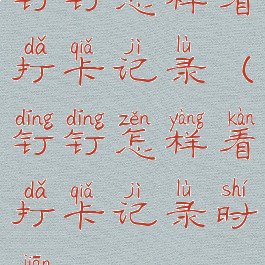 钉钉怎样看
dǎ qiǎ jì lù
打卡记录（
dīng dīng zěn yàng kàn
钉钉怎样看
dǎ qiǎ jì lù shí
打卡记录时
jiān